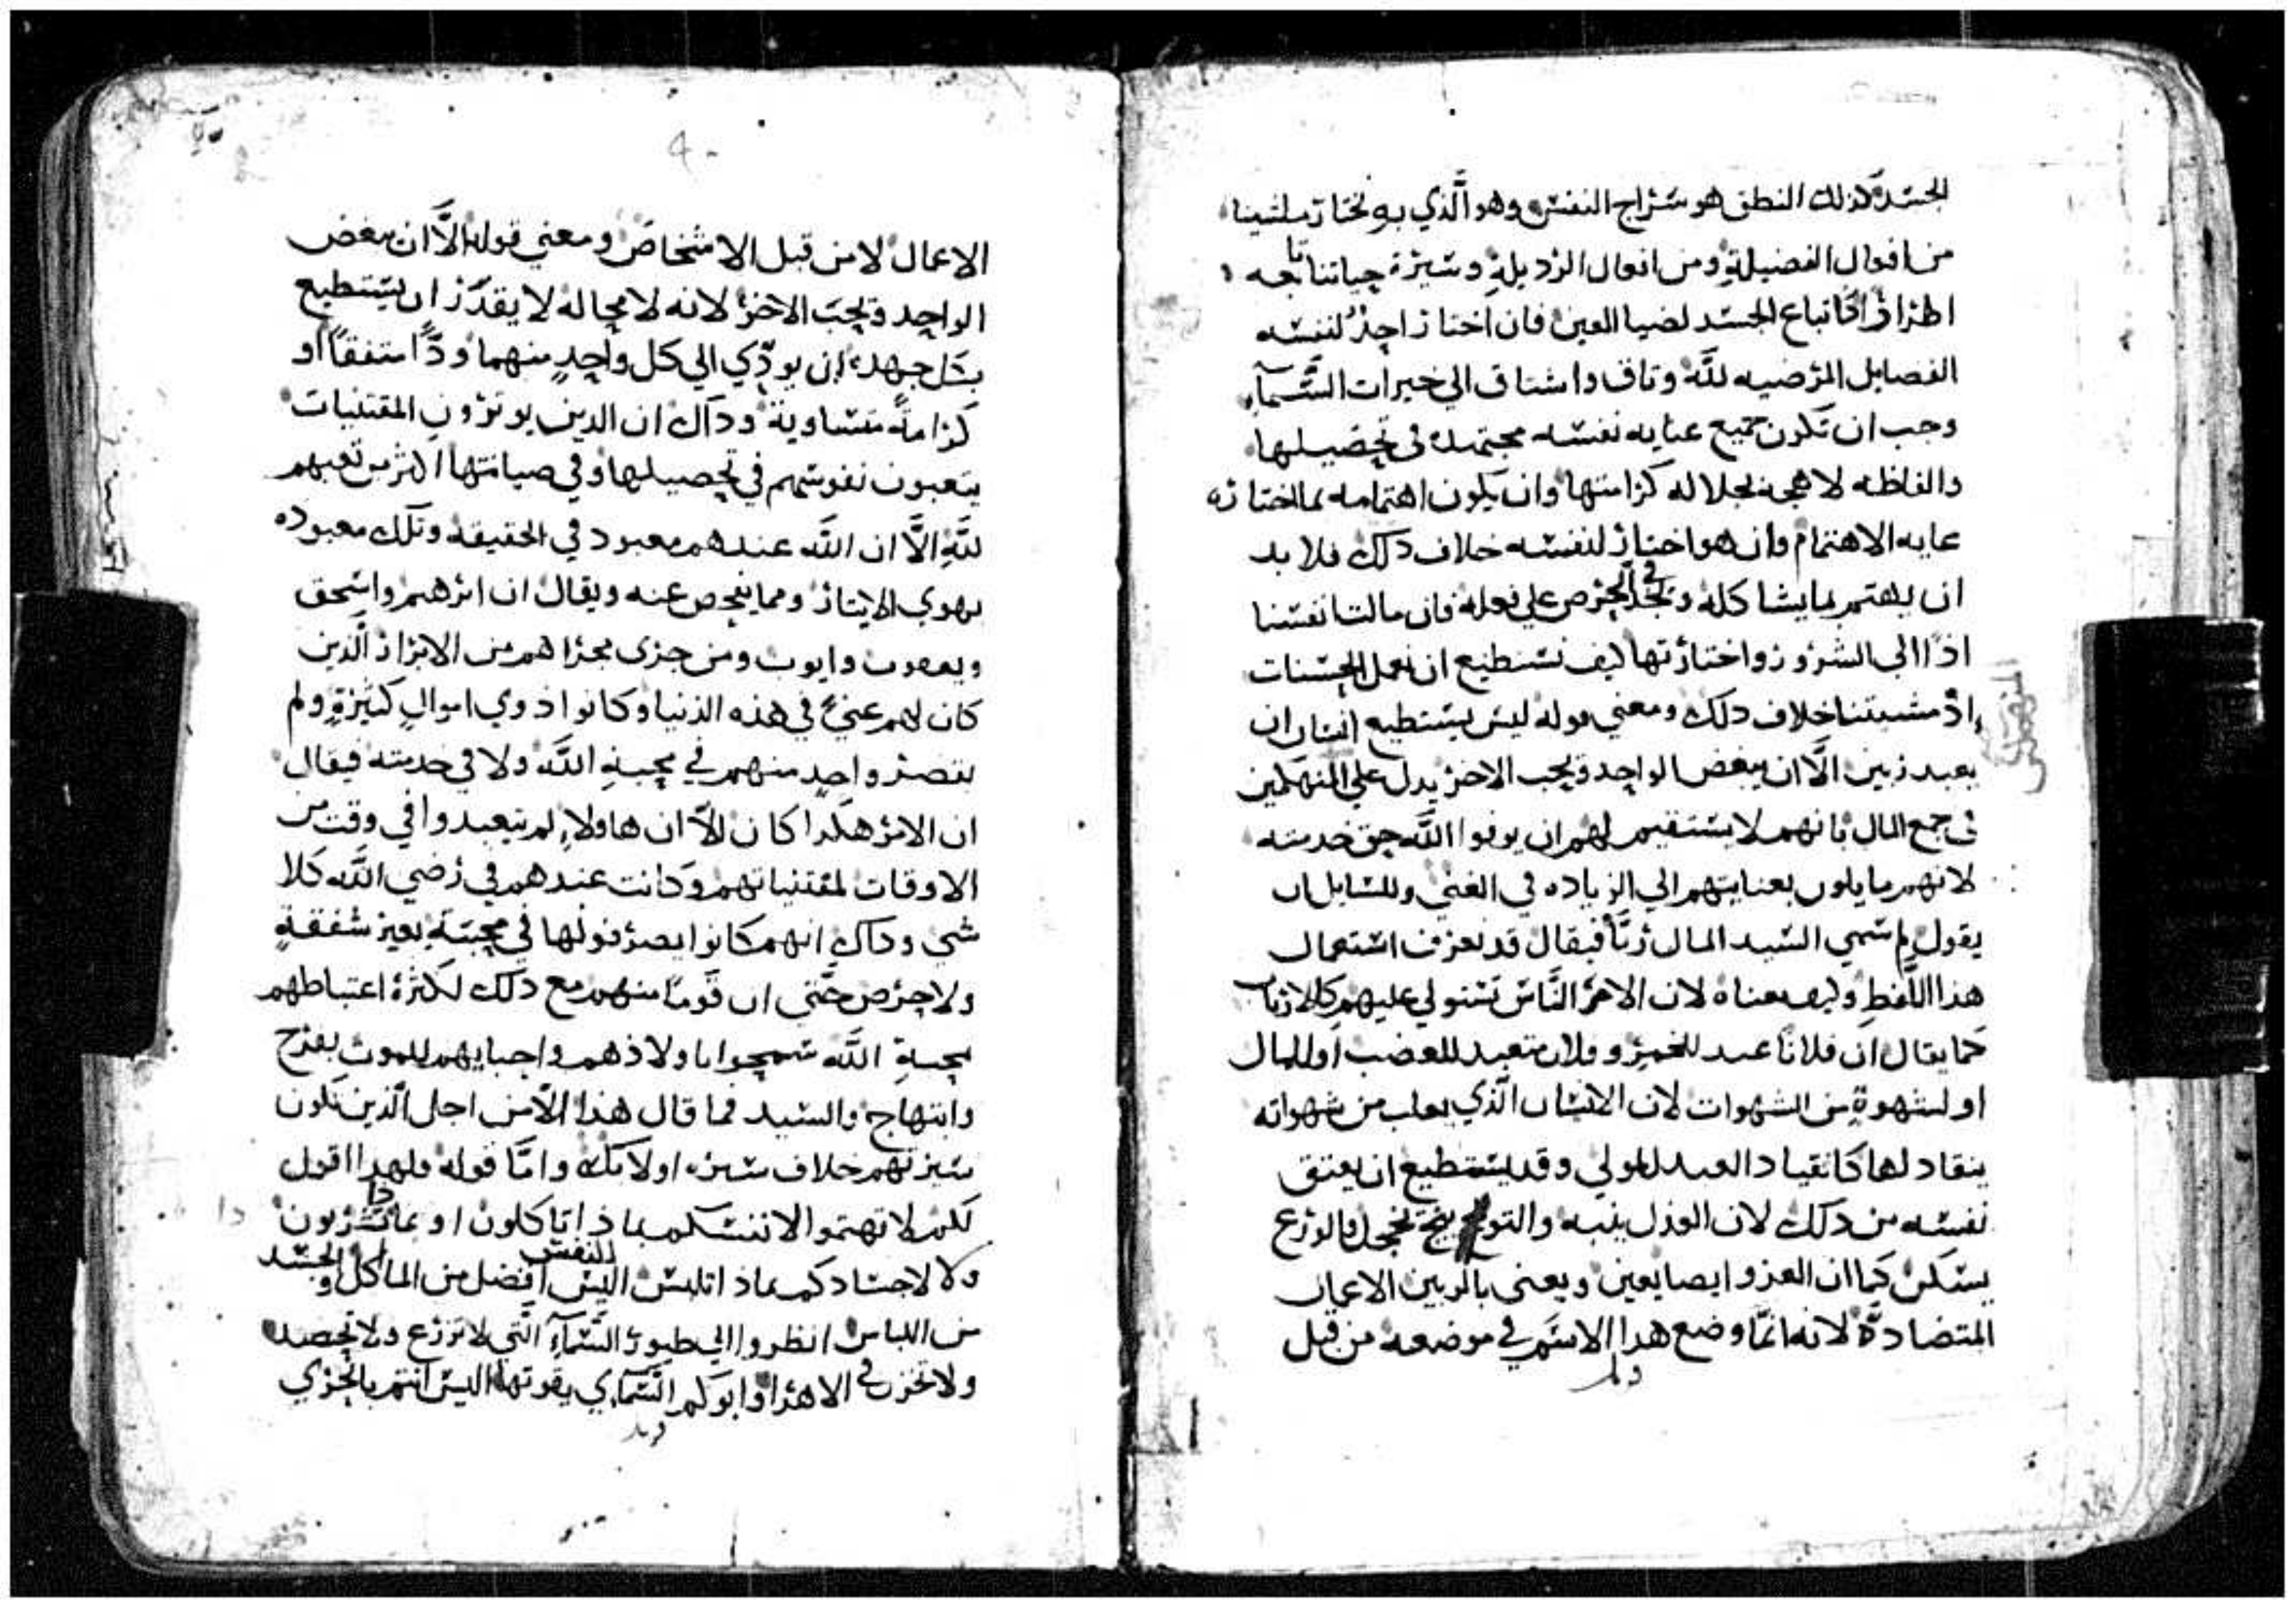 الجسد كذلك النطق هو سراج النفس وهو الذي به نختار ملتينا
من افعال الفضيلة ومن افعال الرديلة وسيرة حياتنا تابعه
اطرافرا كاتباع الجسد لضيا العين فان اختار احد لنفسه
الفضايل المرضيه لله وتاق واشتاق الي خيرات السَّمآء
وجب ان تكون جميع عنايه نفسه مجتهدة في تحصيلها
والفاظه لاهجة بجلاله كرامتها وان يكون اهتمامه بما اختاره
غايه الاهتمام وان هو اختار لنفسه خلاف دلك فلا بد
ان يهتم بما يشاكله وتجد في الحرص علي فعله فان مالت انفسنا
اذًا الي الشرور واختارتها كيف نستطيع ان نعمل الحسنات
إذ مشيتنا خلاف دلك ومعني قوله ليس يستطيع انسان ان
يعبد ربين الَّا ان يبغض الواحد ويحب الاخر يدل علي المنهمكين
في جمع المال بانهم لا يستقيم لهم ان يوفوا اللَّه حق خدمته
لانهم مايلون بعنايتهم الي الزياده في الغني وللسايل ان
يقول لِم سمي السيد المال ربًّا فيقال قد نعرف استعمال
هذا اللَّفظ وكيف معناه لان الامر النَّاس تستولي عليهم كالارباب
كما يقال ان فلانًا عبد للخمر وفلان متعبد للغضب او للمال
او لشهوةٍ من الشهوات لان الانسان الَّذي يغلب من شهواته
ينقاد لها كانقياد العبد للمولي وقد يستطيع ان يعتق
نفسه من دلك لان العذل ينبه والتوبيخ يخجل والورع
يسكن كما ان العزو ايضا يعين ويعني بالربين الاعمال
المتضادَّة لانه انمَّا وضع هدا الاسم في موضعه من قبل
الاعمال لا من قبل الاشخاص ومعني قوله الَّا ان يبغض
الواحد ويحب الاخر لانه لا محاله لا يقدر ان يستطيع
بكل جهده ان يودّي الي كل واحدٍ منهما ودًّا متفقًا او
كرامةً متساوية وداك ان الدين يوثرون المقتنيات
يتعبون نفوسهم في تحصيلها وفي صيانتها اكثر من تعبهم
للَّهِ الَّا ان اللَّه عندهم معبود في الحقيقه وتلك معبوده
بهوي الايثار ومما يفحص عنه ويقال ان ابرهيم واسحق
ويعقوب وايوب ومن جري مجراهم من الابرار الَّذين
كان لهم غنيً في هذه الدنيا وكانوا دوي اموالٍ كثيرةٍ ولم
يقصر واحدٍ منهم في محبةِ اللَّه ولا في خدمته فيقال
ان الامر هكدا كان الَّا ان هاولاءِ لم يتعبدوا في وقت من
الاوقات لمقتنياتهم وكانت عندهم في رضي اللَّه كلا
شي وداك انهم كانوا يصرفونها في محبته بغير شفقةٍ
ولا حرص حتَّي ان قومًا منهم مع دلك لكثرة اغتباطهم
بمحبةِ اللَّه سمحوا باولادهم واحبايهم للموت بفرح
وابتهاج والسيد فما قال هذا الَّا من اجل الَّذين تكون
سيرتهم خلاف سيره اولايك وامَّا قوله فلهدا اقول
لكم لا تهتموا لانفسكم بماذا تاكلون او بماذا تشربون
ولا لاجسادكم بماذا تلبس اليس النفس افضل من الماكل والجسد
من اللباس انظروا الي طيور السَّمآءِ الَّتي لا تزرع ولا تحصد
ولا تخزن في الاهرا وابوكم السَّماءي يقوتها اليس انتم بالحري